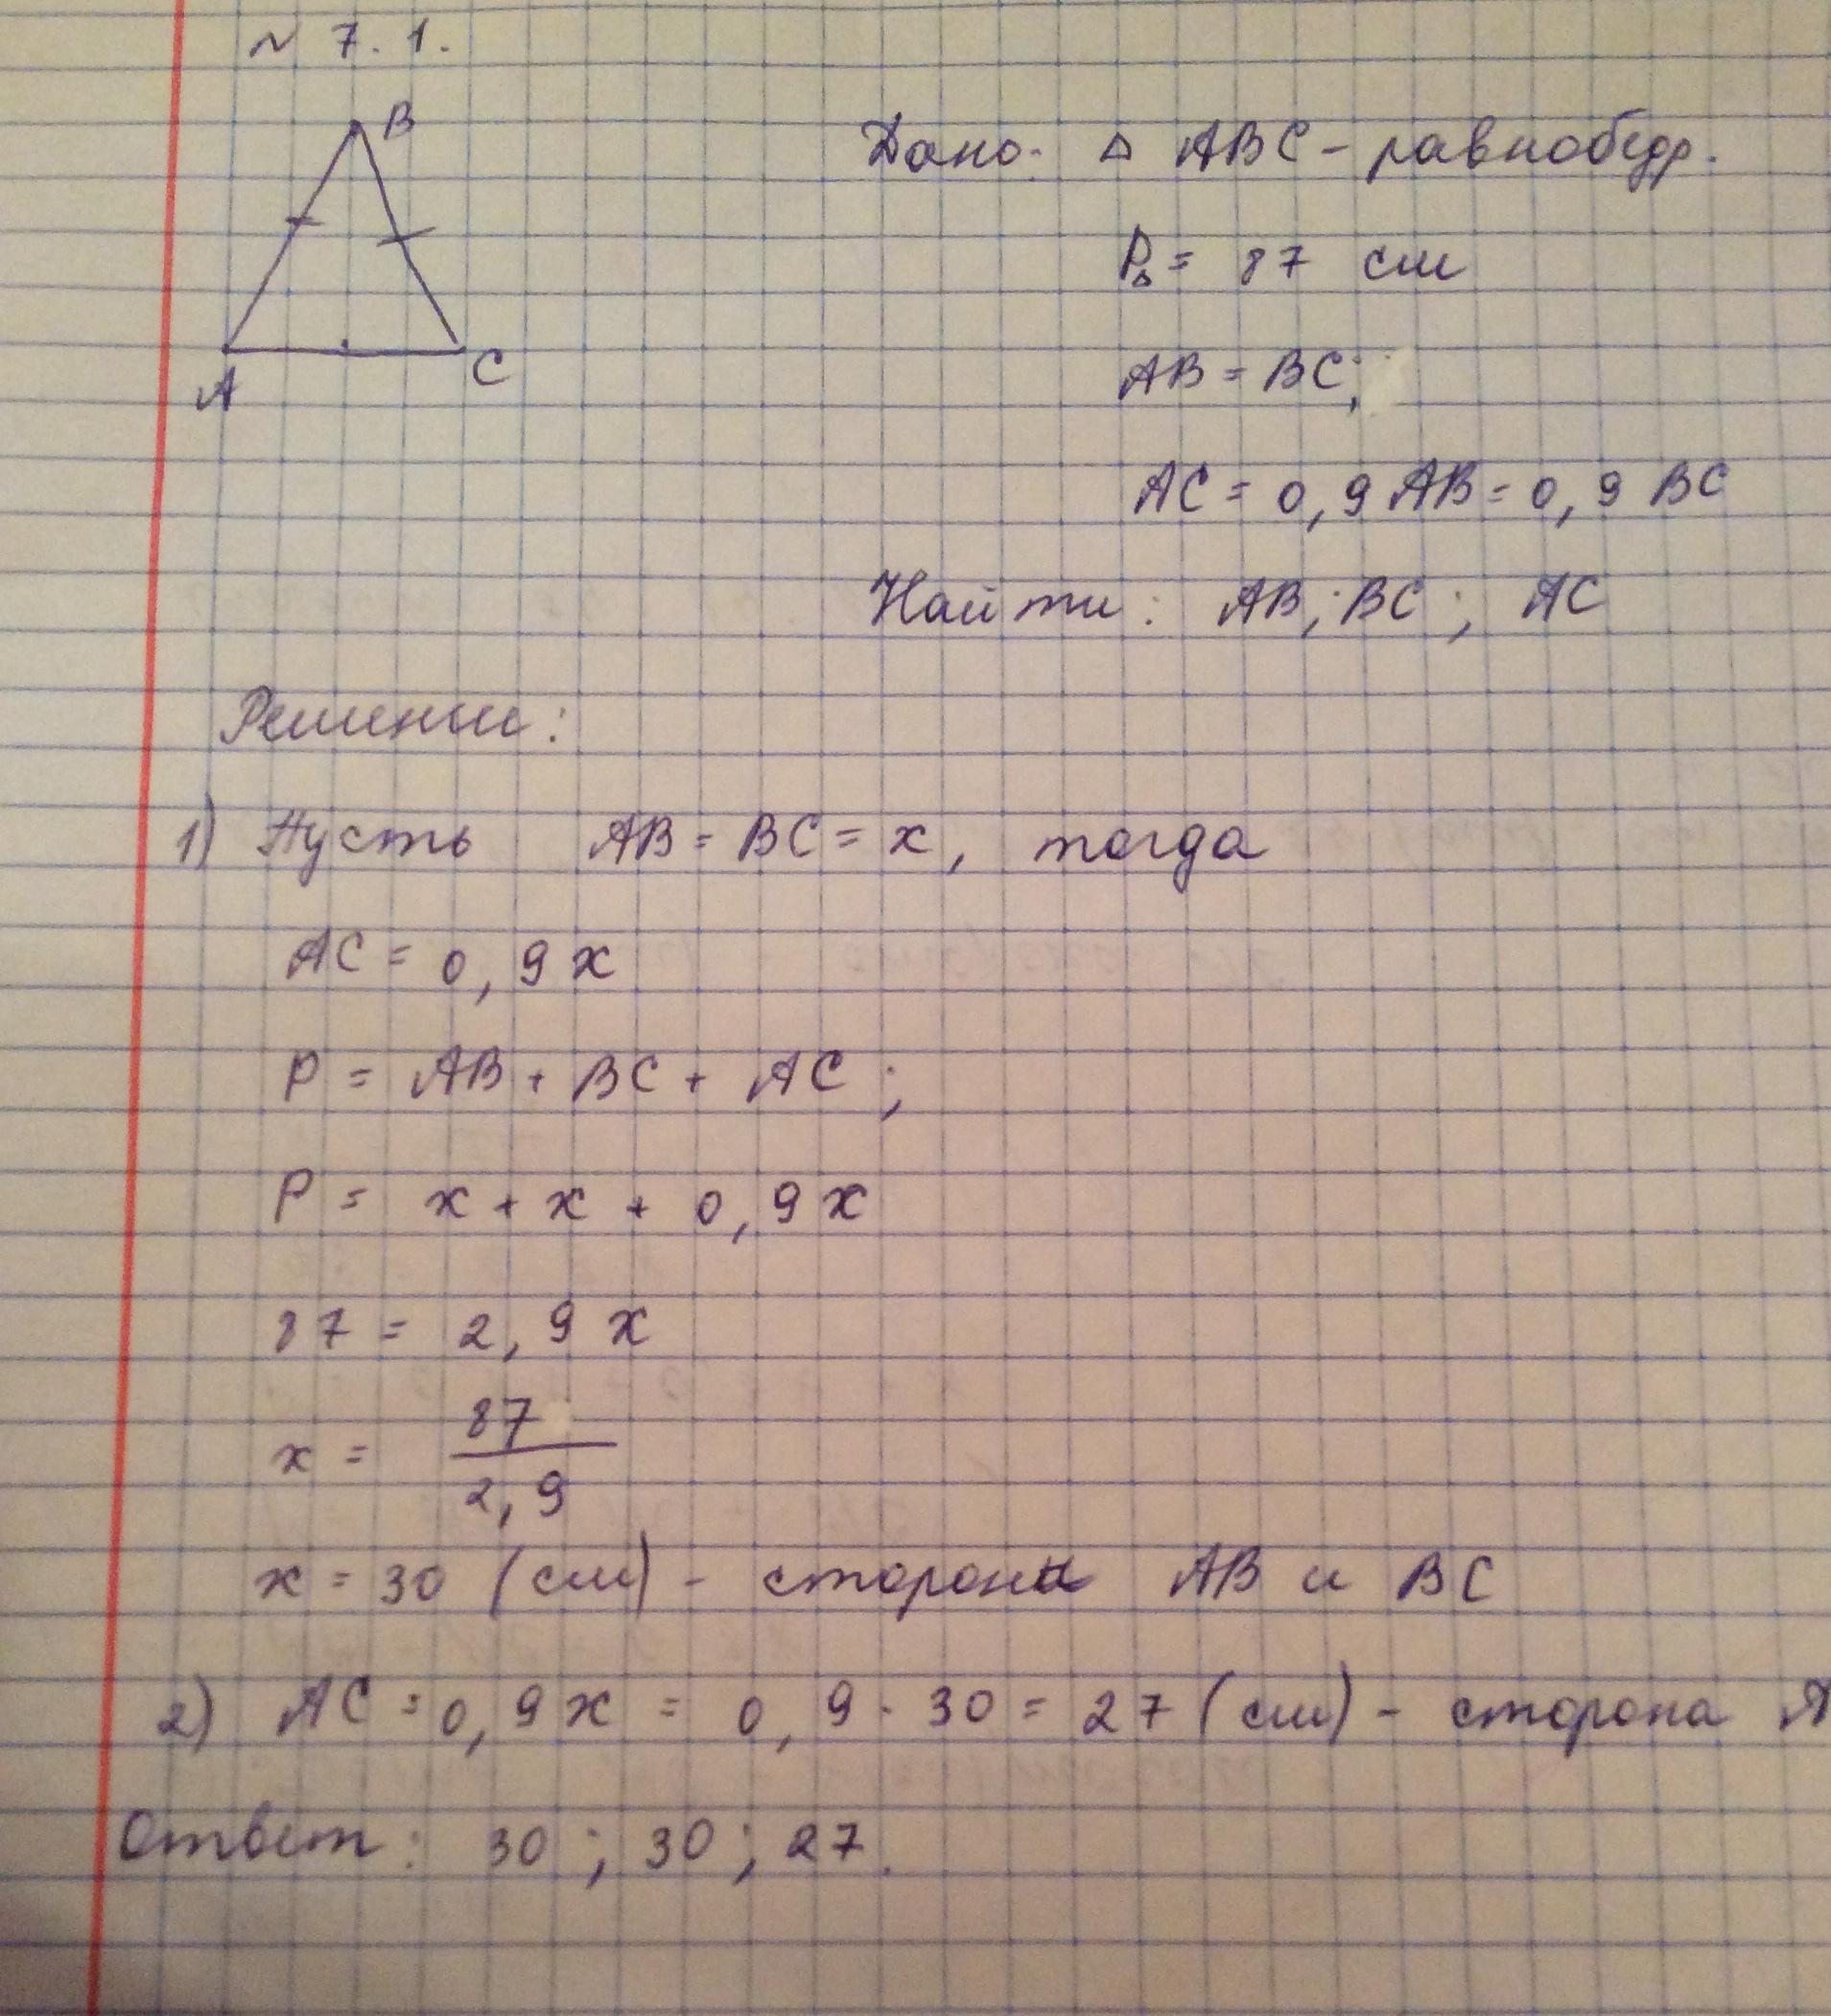 ~ 7. 1.
B
A
C
Дано: △ ABC - равнобедр.
P△ = 87 см
AB = BC;
AC = 0,9 AB = 0,9 BC
Найти: AB; BC; AC
Решение:
1) Пусть AB = BC = x, тогда
AC = 0,9 x
P = AB + BC + AC;
P = x + x + 0,9 x
87 = 2,9 x
x = 87 / 2,9
x = 30 (см) - сторона AB и BC
2) AC = 0,9 x = 0,9 · 30 = 27 (см) - сторона A
Ответ: 30; 30; 27.